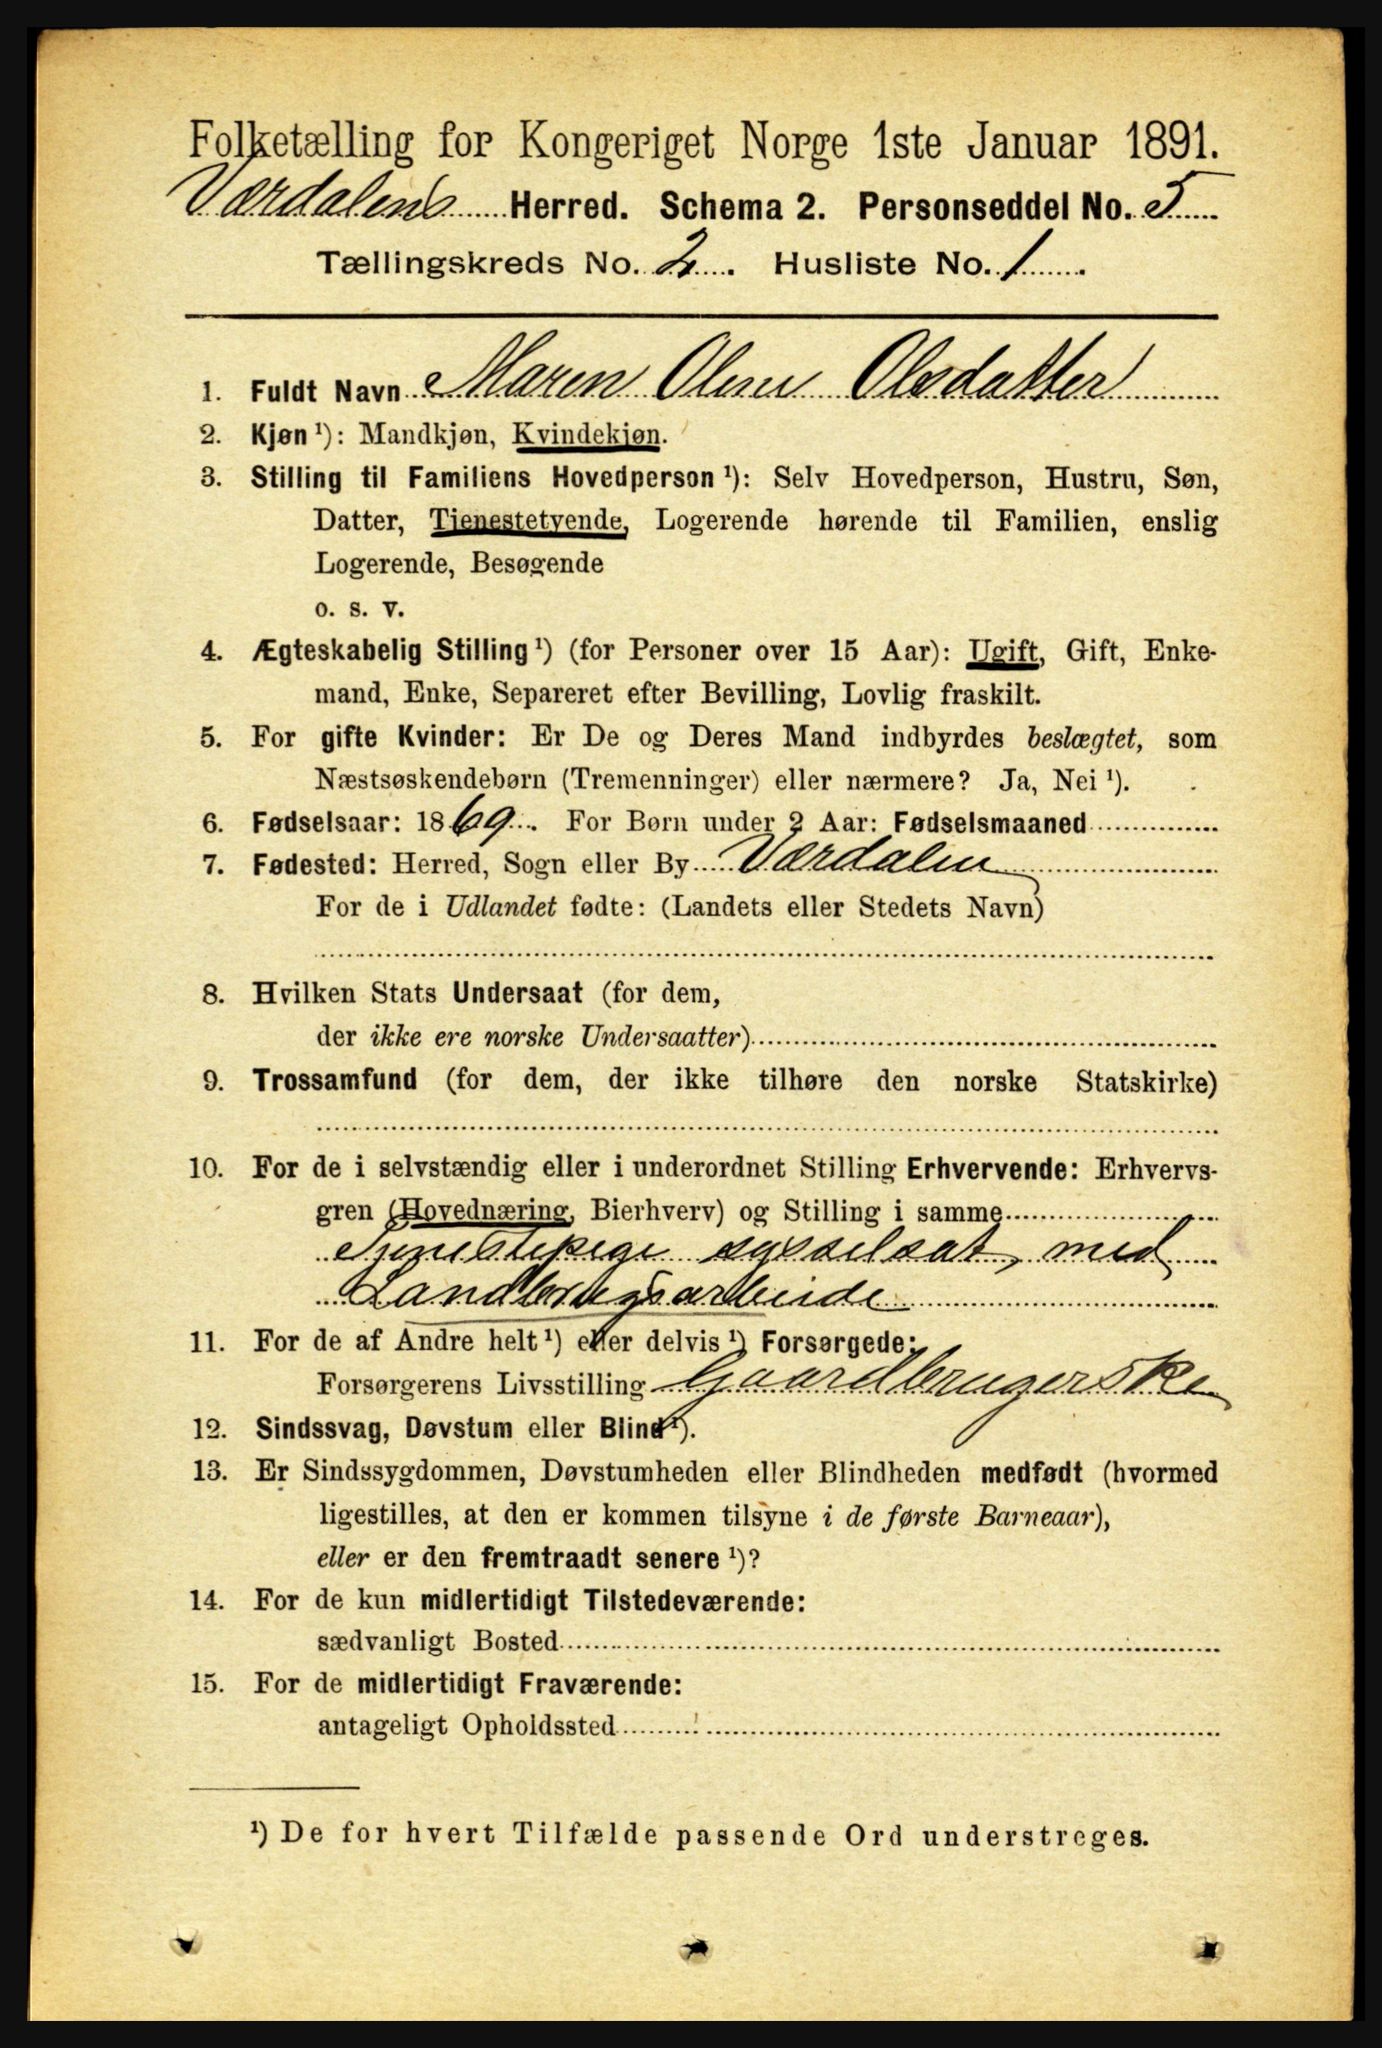 Folketælling for Kongeriget Norge 1ste Januar 1891.
Værdalens Herred. Schema 2. Personseddel No. 5
Tællingskreds No. 2. Husliste No. 1
1. Fuldt Navn Maren Olene Olsdatter
2. Kjøn ¹): Mandkjøn, Kvindekjøn.
3. Stilling til Familiens Hovedperson ¹): Selv Hovedperson, Hustru, Søn,
Datter, Tjenestetyende, Logerende hørende til Familien, enslig
Logerende, Besøgende
o. s. v.
4. Ægteskabelig Stilling ¹) (for Personer over 15 Aar): Ugift, Gift, Enke-
mand, Enke, Separeret efter Bevilling, Lovlig fraskilt.
5. For gifte Kvinder: Er De og Deres Mand indbyrdes beslægtet, som
Næstsøskendebørn (Tremenninger) eller nærmere? Ja, Nei ¹).
6. Fødselsaar: 1869. For Børn under 2 Aar: Fødselsmaaned
7. Fødested: Herred, Sogn eller By Værdalen
For de i Udlandet fødte: (Landets eller Stedets Navn)
8. Hvilken Stats Undersaat (for dem,
der ikke ere norske Undersaatter)
9. Trossamfund (for dem, der ikke tilhøre den norske Statskirke)
10. For de i selvstændig eller i underordnet Stilling Erhvervende: Erhvervs-
gren (Hovednæring, Bierhverv) og Stilling i samme
Tjenestepige sysselsat med
Landbrugsarbeide
11. For de af Andre helt ¹) eller delvis ¹) Forsørgede:
Forsørgerens Livsstilling Gaardbrugerske
12. Sindssvag, Døvstum eller Blind ¹).
13. Er Sindssygdommen, Døvstumheden eller Blindheden medfødt (hvormed
ligestilles, at den er kommen tilsyne i de første Barneaar),
eller er den fremtraadt senere ¹)?
14. For de kun midlertidigt Tilstedeværende:
sædvanligt Bosted
15. For de midlertidigt Fraværende:
antageligt Opholdssted
¹) De for hvert Tilfælde passende Ord understreges.